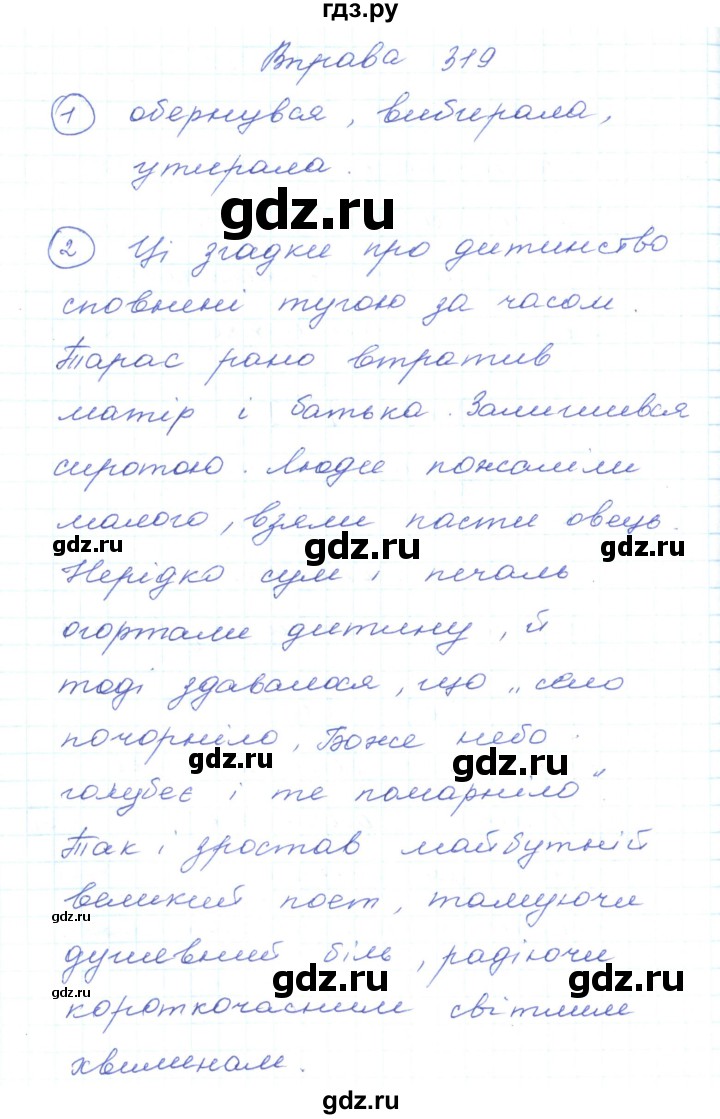 гдз.ру
Вправа 319
1 обернувся, вибирала,
утирала.
gdz.ru
2 Ці згадки про дитинство
сповнені тугою за часом.
Тарас рано втратив
матір і батька. Залишився
сиротою. Люди пожаліли
малого, взяли пасти овець.
gdz.ru gdz.ru gdz.ru
Нерідко сум і печаль
огортали дитину, й
тоді здавалося, що „село
почорніло, Боже небо
gdz.ru gdz.ru
голубеє і те помарніло“.
Так і зростав майбутній
великий поет, тамуючи
gdz.ru
душевний біль, радіючи
gdz.ru gdz.ru gdz.ru
короткочасним світлим
хвилинам.
gdz.ru